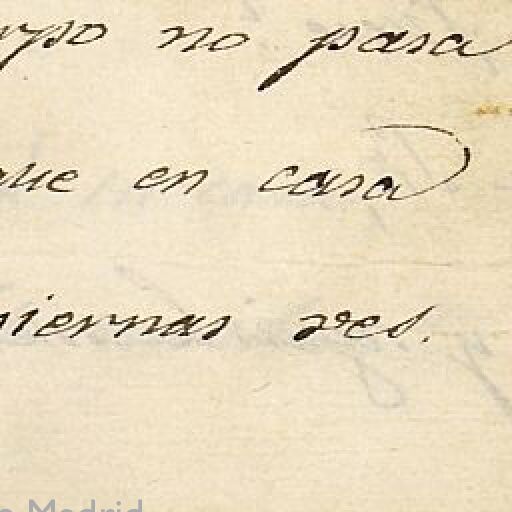 no pasa
que en casa
piernas ves.
Madrid